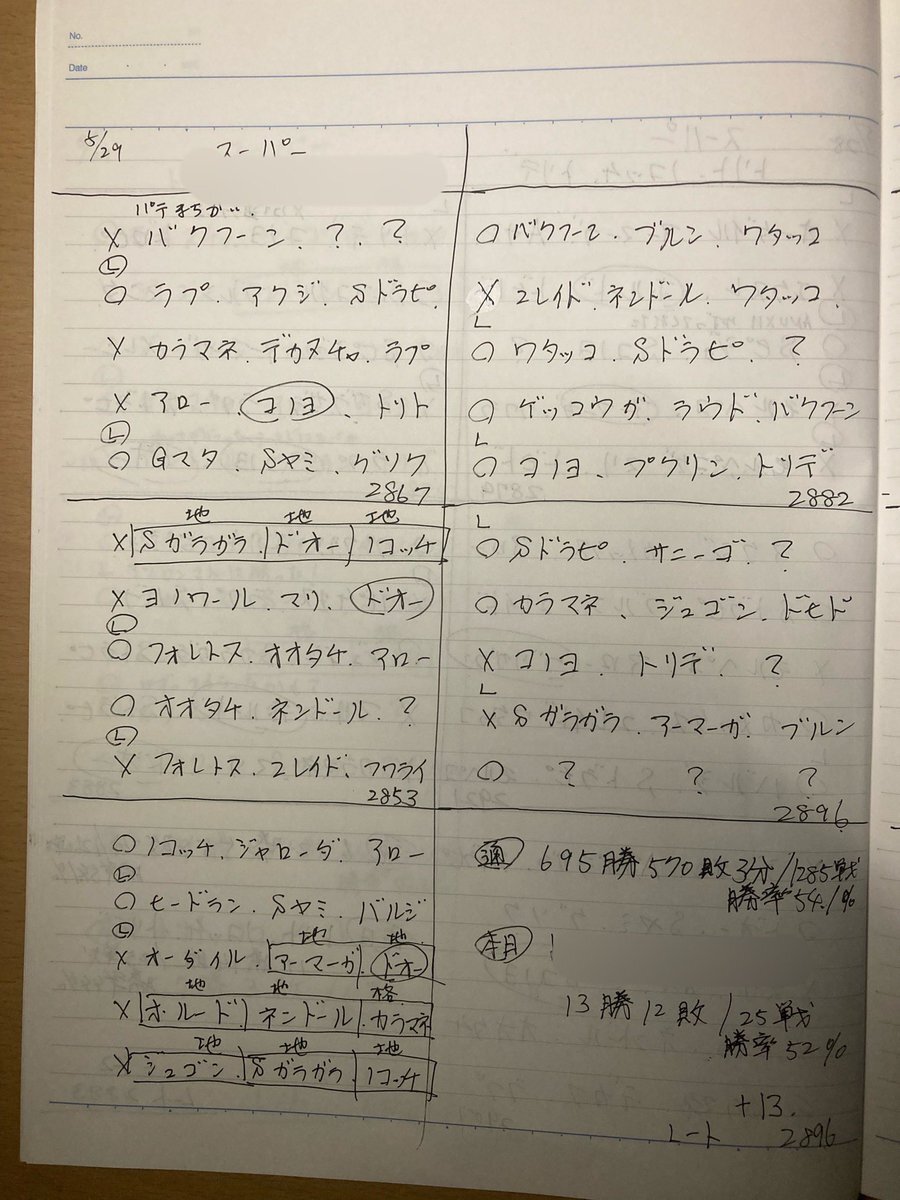 No.
Date
5/29 スーパー
パテまちがい..
X バクフーン . ? . ?
Ⓛ
○ ラプ . アクジ . Sドラピ.
X カラマネ . デカヌチャ . ラプ
X アロー . コノヨ . トリト
Ⓛ
○ Gマタ . Sヤミ . ゲソク
2867
地 地 地
X Sガラガラ . ドオー ノコッチ
X ヨノワール . マリ . ドオー
Ⓛ
○ フォレトス . オオタチ . アロー
○ オオタチ . ネンドール . ?
Ⓛ
X フォレトス . エレイド . フワライ
2853
○ ノコッチ . ジャローダ . アロー
Ⓛ
○ ヒードラン . Sヤミ . バルジ
Ⓛ
地 地
X オーダイル . アーマーガ . ドオー
地 地 格
X ホルード ネンドール . カラマネ
地 地 地
X ジュゴン . Sガラガラ ノコッチ
○ バクフーン . ブルン . ワタッコ
X エレイド . ネンドール . ワタッコ .
L
○ ワタッコ . Sドラピ . ?
○ ゲッコウガ . ラウド . バクフーン
L
○ コノヨ . プクリン . トリデ
2882
L
○ Sドラピ . サニーゴ . ?
○ カラマネ . ジュゴン . ドヒド
X コノヨ . トリデ . ?
L
X Sガラガラ . アーマーガ . ブルン
○ ? ? ?
2896
通 695勝 570敗 3分/1285戦
勝率 54.1%
本月
13勝 12敗 / 25戦
勝率 52%
+13.
レート 2896